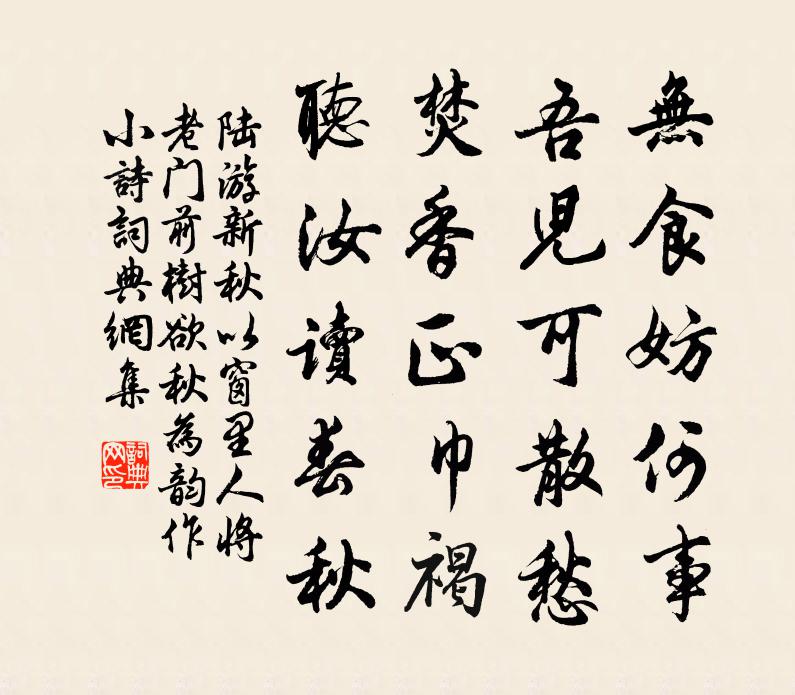 無食妨何事
吾児可散愁
焚香正巾褐
聽汝讀春秋
陆游新秋以窗里人將
老门前樹欲秋為韵作
小詩詞典網集
詞典
网印